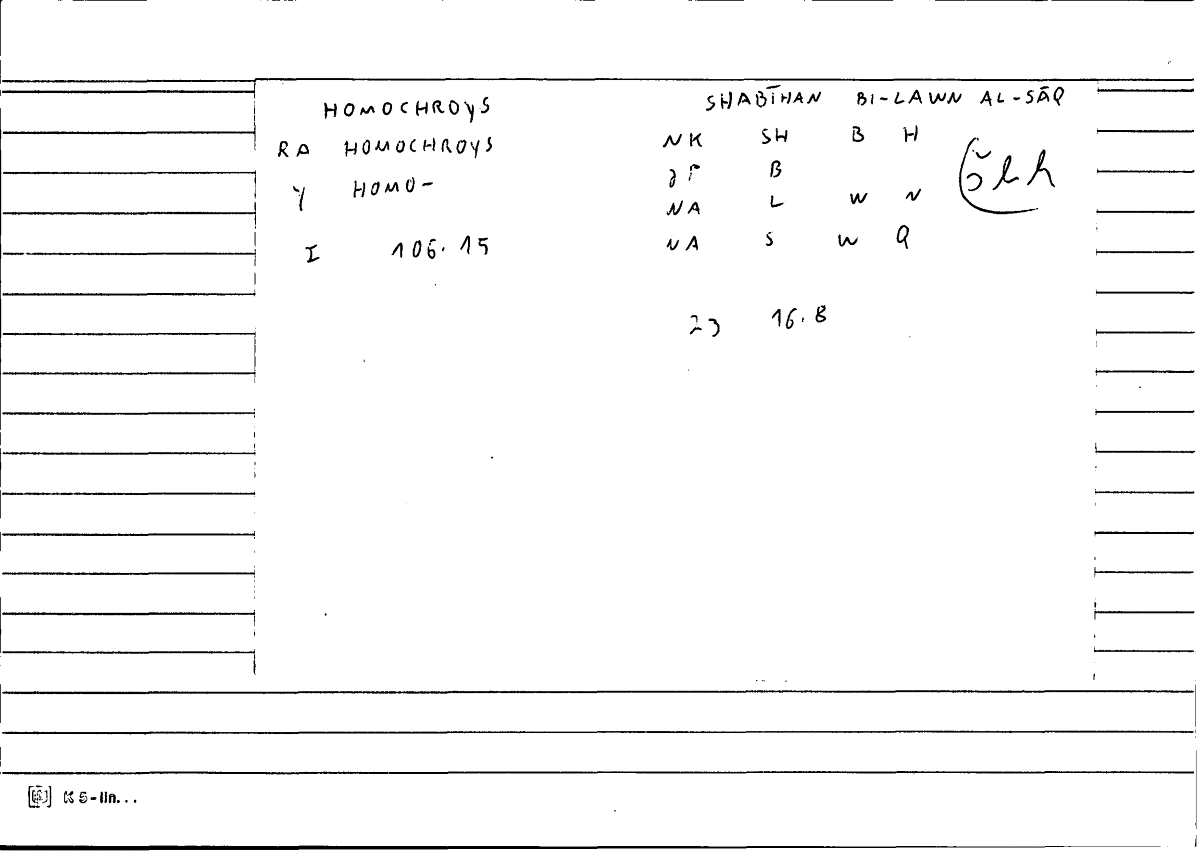 HOMOCHROYS
RA HOMOCHROYS
Y HOMO-
I 106.15
SHABĪHAN BI-LAWN AL-SĀQ
NK SH B H
B
NA L W N
NA S W Q
23 16.8
K 5-lin...